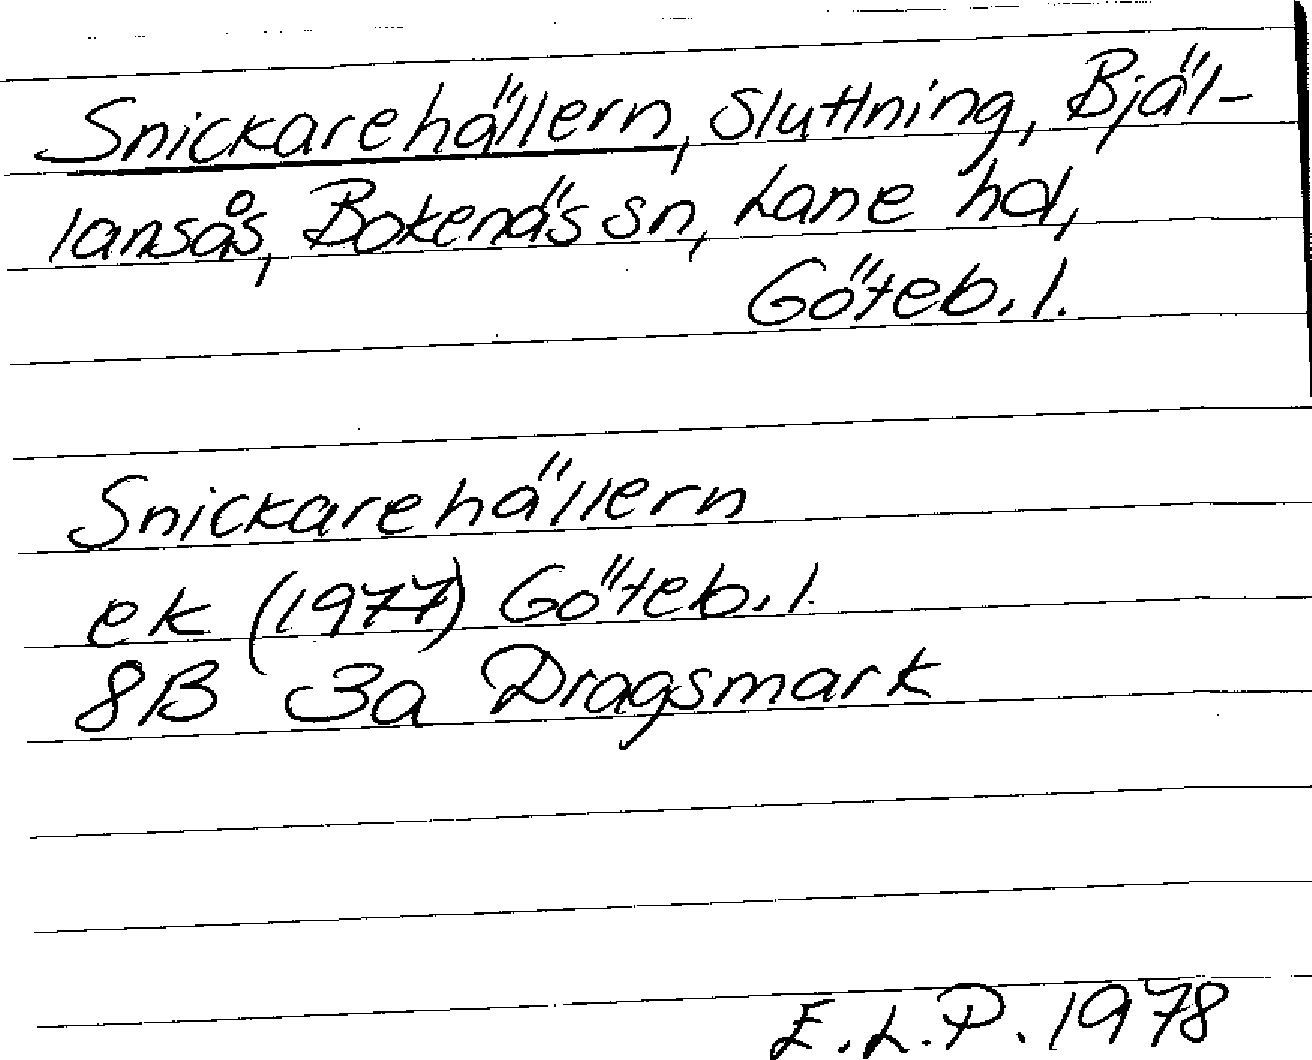 Snickarehällern, sluttning, Bjäl-
lansås, Bokenäs sn, Lane hd,
Göteb. l.
Snickarehällern
ek (1977) Göteb. l.
8B 3a Dragsmark
E. L. P. 1978